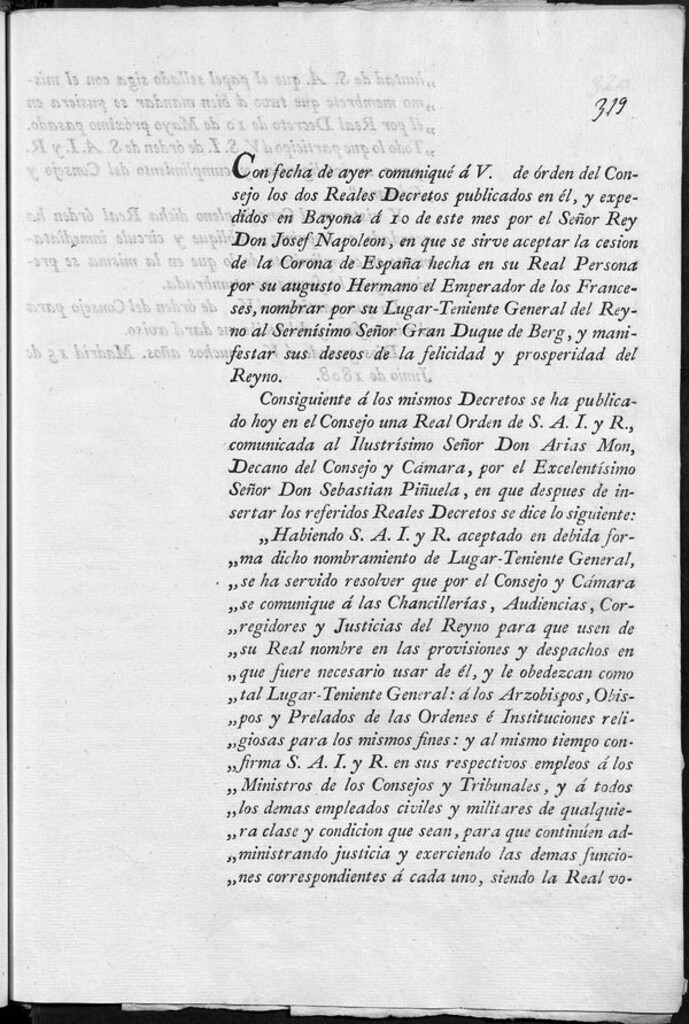 319
Con fecha de ayer comuniqué á V. de órden del Con-
sejo los dos Reales Decretos publicados en él, y expe-
didos en Bayona á 10 de este mes por el Señor Rey
Don Josef Napoleon, en que se sirve aceptar la cesion
de la Corona de España hecha en su Real Persona
por su augusto Hermano el Emperador de los France-
ses, nombrar por su Lugar-Teniente General del Rey-
no al Serenísimo Señor Gran Duque de Berg, y mani-
festar sus deseos de la felicidad y prosperidad del
Reyno.
Consiguiente á los mismos Decretos se ha publica-
do hoy en el Consejo una Real Orden de S. A. I. y R.,
comunicada al Ilustrísimo Señor Don Arias Mon,
Decano del Consejo y Cámara, por el Excelentísimo
Señor Don Sebastian Piñuela, en que despues de in-
sertar los referidos Reales Decretos se dice lo siguiente:
„Habiendo S. A. I. y R. aceptado en debida for-
„ma dicho nombramiento de Lugar-Teniente General,
„se ha servido resolver que por el Consejo y Cámara
„se comunique á las Chancillerías, Audiencias, Cor-
„regidores y Justicias del Reyno para que usen de
„su Real nombre en las provisiones y despachos en
„que fuere necesario usar de él, y le obedezcan como
„tal Lugar-Teniente General: á los Arzobispos, Obis-
„pos y Prelados de las Ordenes é Instituciones reli-
„giosas para los mismos fines: y al mismo tiempo con-
„firma S. A. I. y R. en sus respectivos empleos á los
„Ministros de los Consejos y Tribunales, y á todos
„los demas empleados civiles y militares de qualquie-
„ra clase y condicion que sean, para que continúen ad-
„ministrando justicia y exerciendo las demas funcio-
„nes correspondientes á cada uno, siendo la Real vo-